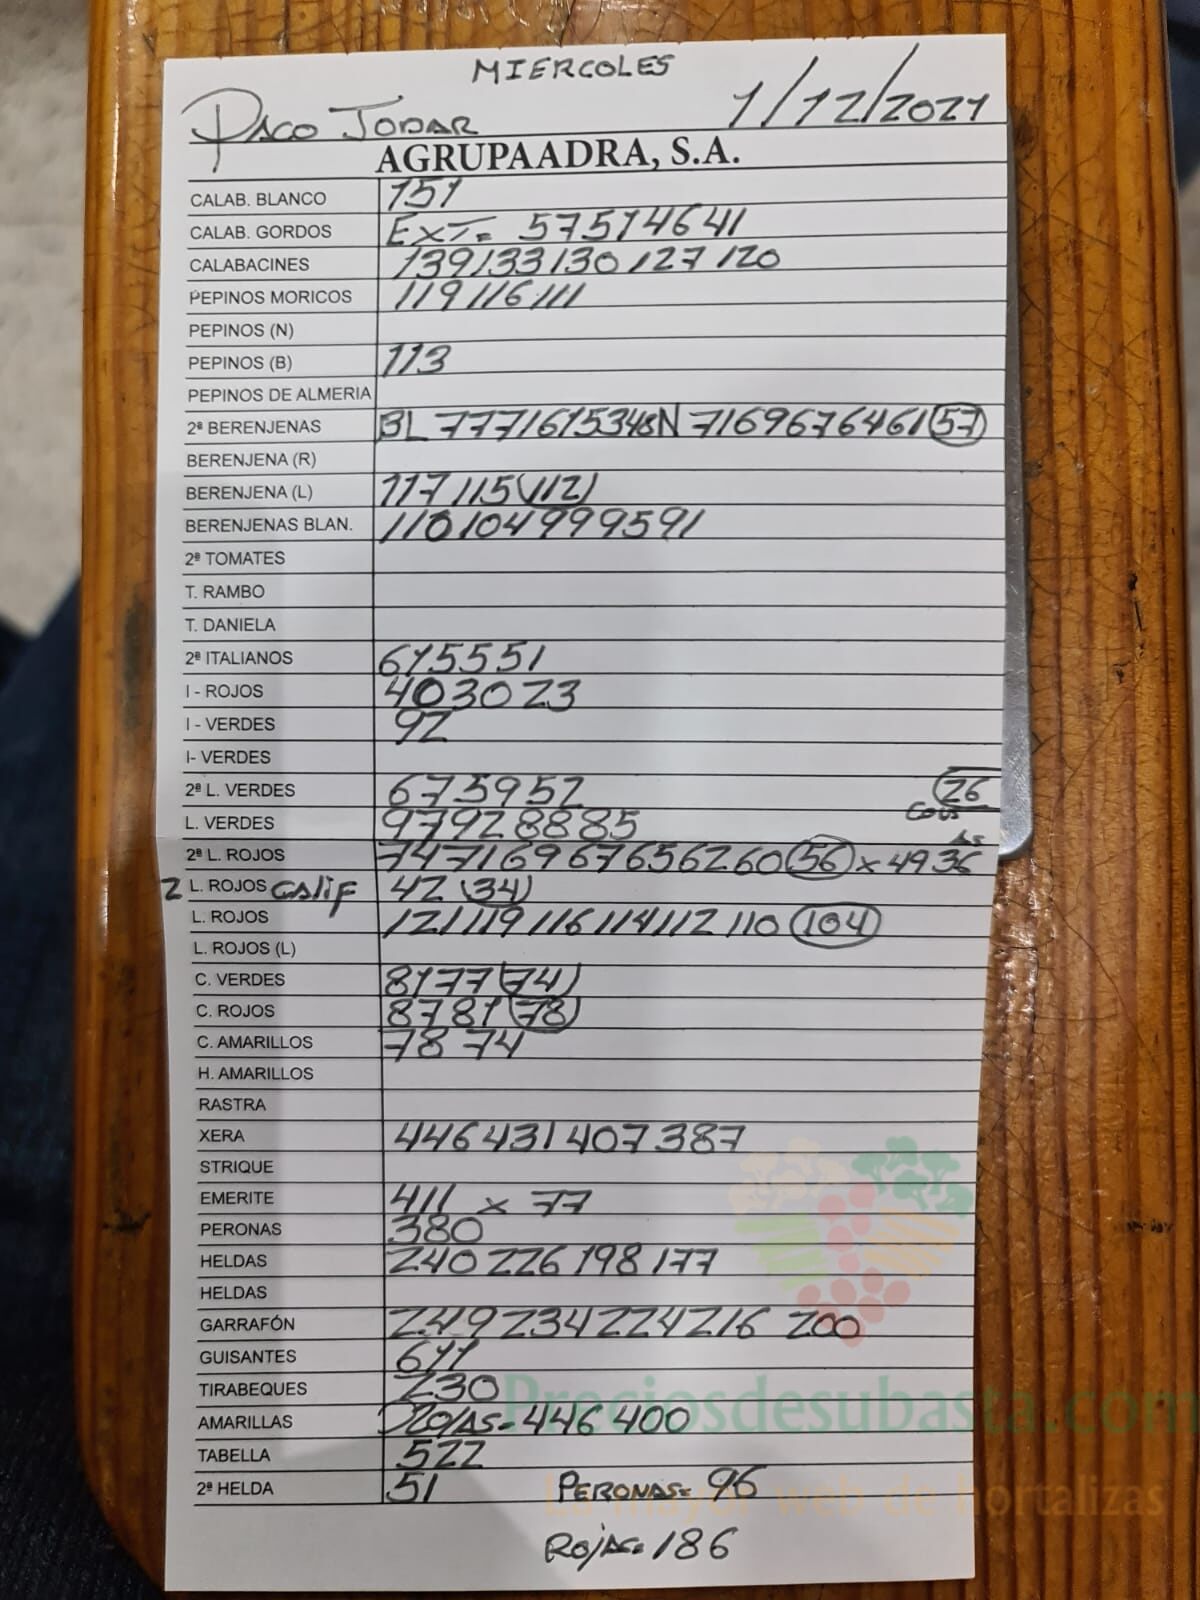 MIERCOLES
PACO JODAR 1/12/2021
AGRUPAADRA, S.A.
CALAB. BLANCO 151
CALAB. GORDOS EXT= 57 51 46 41
CALABACINES 139 133 130 127 120
PEPINOS MORICOS 119 116 111
PEPINOS (N)
PEPINOS (B) 113
PEPINOS DE ALMERIA
2ª BERENJENAS BL 77 71 61 53 48 N 71 69 67 64 61 57
BERENJENA (R)
BERENJENA (L) 117 115 112
BERENJENAS BLAN. 110 104 99 95 91
2ª TOMATES
T. RAMBO
T. DANIELA
2ª ITALIANOS 61 55 51
I - ROJOS 40 30 23
I - VERDES 92
I- VERDES
2ª L. VERDES 67 59 52 26
L. VERDES 97 92 88 85
2ª L. ROJOS 74 71 69 67 65 62 60 56 x 49 36
2 L. ROJOS CALIF 42 34
L. ROJOS 121 119 116 114 112 110 104
L. ROJOS (L)
C. VERDES 81 77 74
C. ROJOS 87 81 78
C. AMARILLOS 78 74
H. AMARILLOS
RASTRA
XERA 446 431 407 387
STRIQUE
EMERITE 411 x 77
PERONAS 380
HELDAS 240 226 198 177
HELDAS
GARRAFÓN 249 234 224 216 200
GUISANTES 611
TIRABEQUES 230
AMARILLAS ROJAS= 446 400
TABELLA 522
2ª HELDA 51 PERONAS= 96
ROJAS= 186
Preciosdesubasta.com
La mayor web de hortalizas